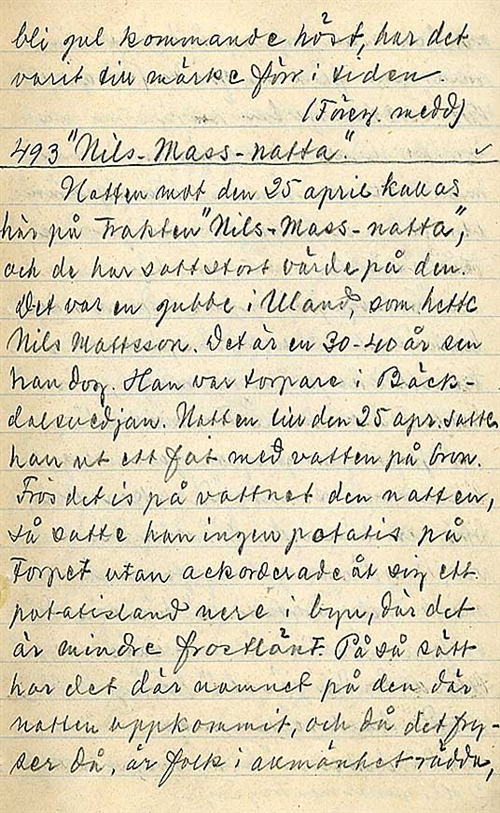 bli gul kommande höst, har det
varit till märke förr i tiden.
(Föreg. medd)
493 "Nils-Mass-natta".
Natten mot den 25 april kallas
här på trakten "Nils-Mass-natta",
och de har satt stort värde på den.
Det var en gubbe i Uland, som hette
Nils Mattsson. Det är en 30-40 år sen
han dog. Han var torpare i Bäck-
dalsvedjan. Natten till den 25 apr. satte
han ut ett fat med vatten på bron.
Frös det is på vattnet den natten,
så satte han ingen potatis på
torpet utan ackorderade åt sig ett
potatisland nere i byn, där det
är mindre frostlänt. På så sätt
har det där namnet på den där
natten uppkommit, och då det fry-
ser då, är folk i allmänhet rädda,